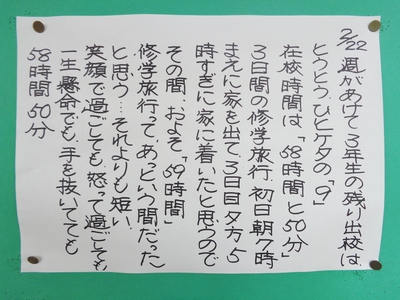 2/22 週があけて3年生の残り出校は
とうとう、ひとケタの「9」
在校時間は「58時間と50分」
3日間の修学旅行、初日朝7時
まえに家を出て3日目夕方5
時すぎに家に着いたと思うので
その間、およそ「59時間」
修学旅行って、あっという間だった
と思う…それよりも短い
笑顔で過ごしても、怒って過ごしても
一生懸命でも、手を抜いてても
58時間50分